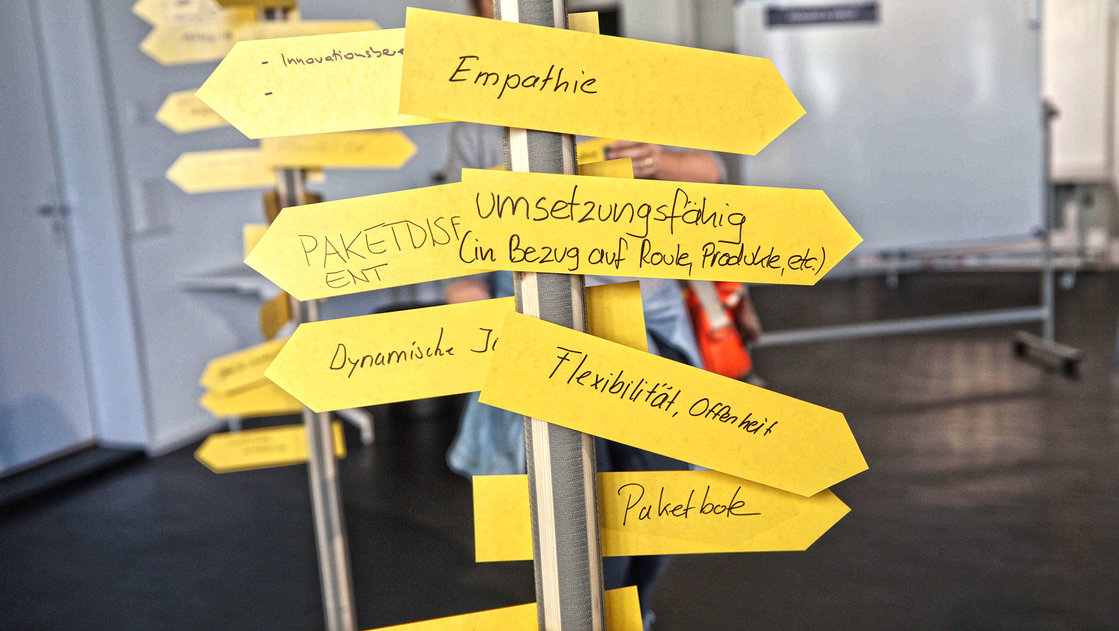 - Innovationsbere
-
Empathie
PAKETDISP
ENT
umsetzungsfähig
(in Bezug auf Route, Produkte, etc.)
Dynamische
Flexibilität, Offenheit
Paketbote